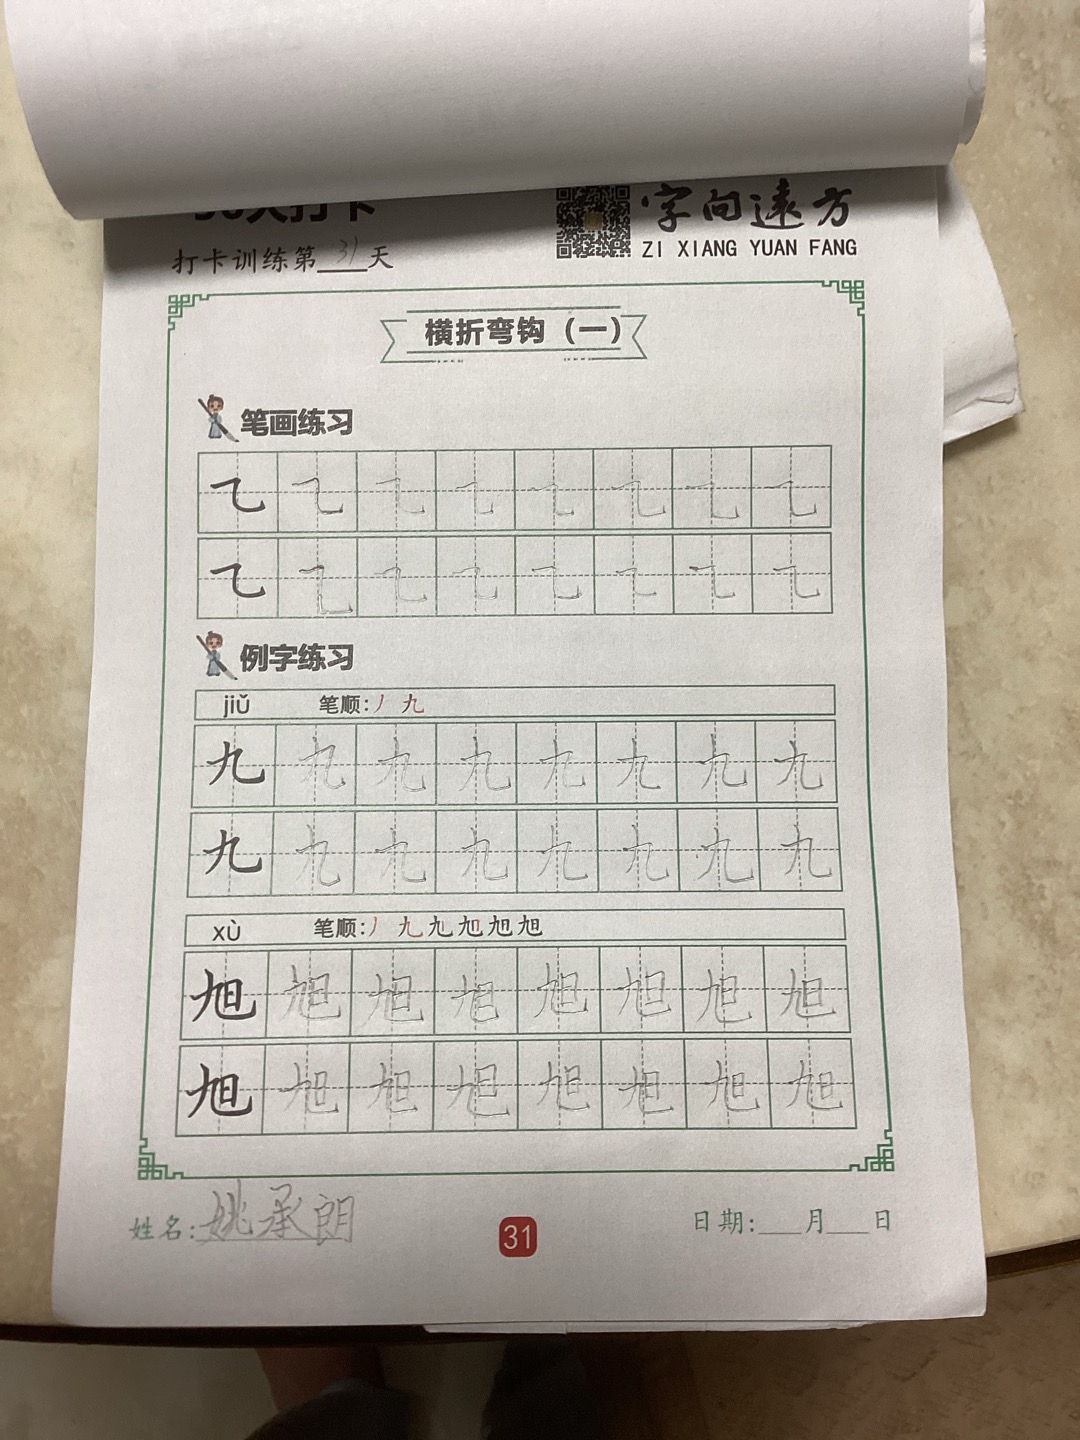 字向远方
ZI XIANG YUAN FANG
打卡训练第31天
横折弯钩（一）
笔画练习
㇈ ㇈ ㇈ ㇈ ㇈ ㇈ ㇈ ㇈
㇈ ㇈ ㇈ ㇈ ㇈ ㇈ ㇈ ㇈
例字练习
jiǔ 笔顺:丿 九
九 九 九 九 九 九 九 九
九 九 九 九 九 九 九 九
xù 笔顺:丿 九 九 旭 旭 旭
旭 旭 旭 旭 旭 旭 旭 旭
旭 旭 旭 旭 旭 旭 旭 旭
姓名:姚承朗
31
日期:___月___日